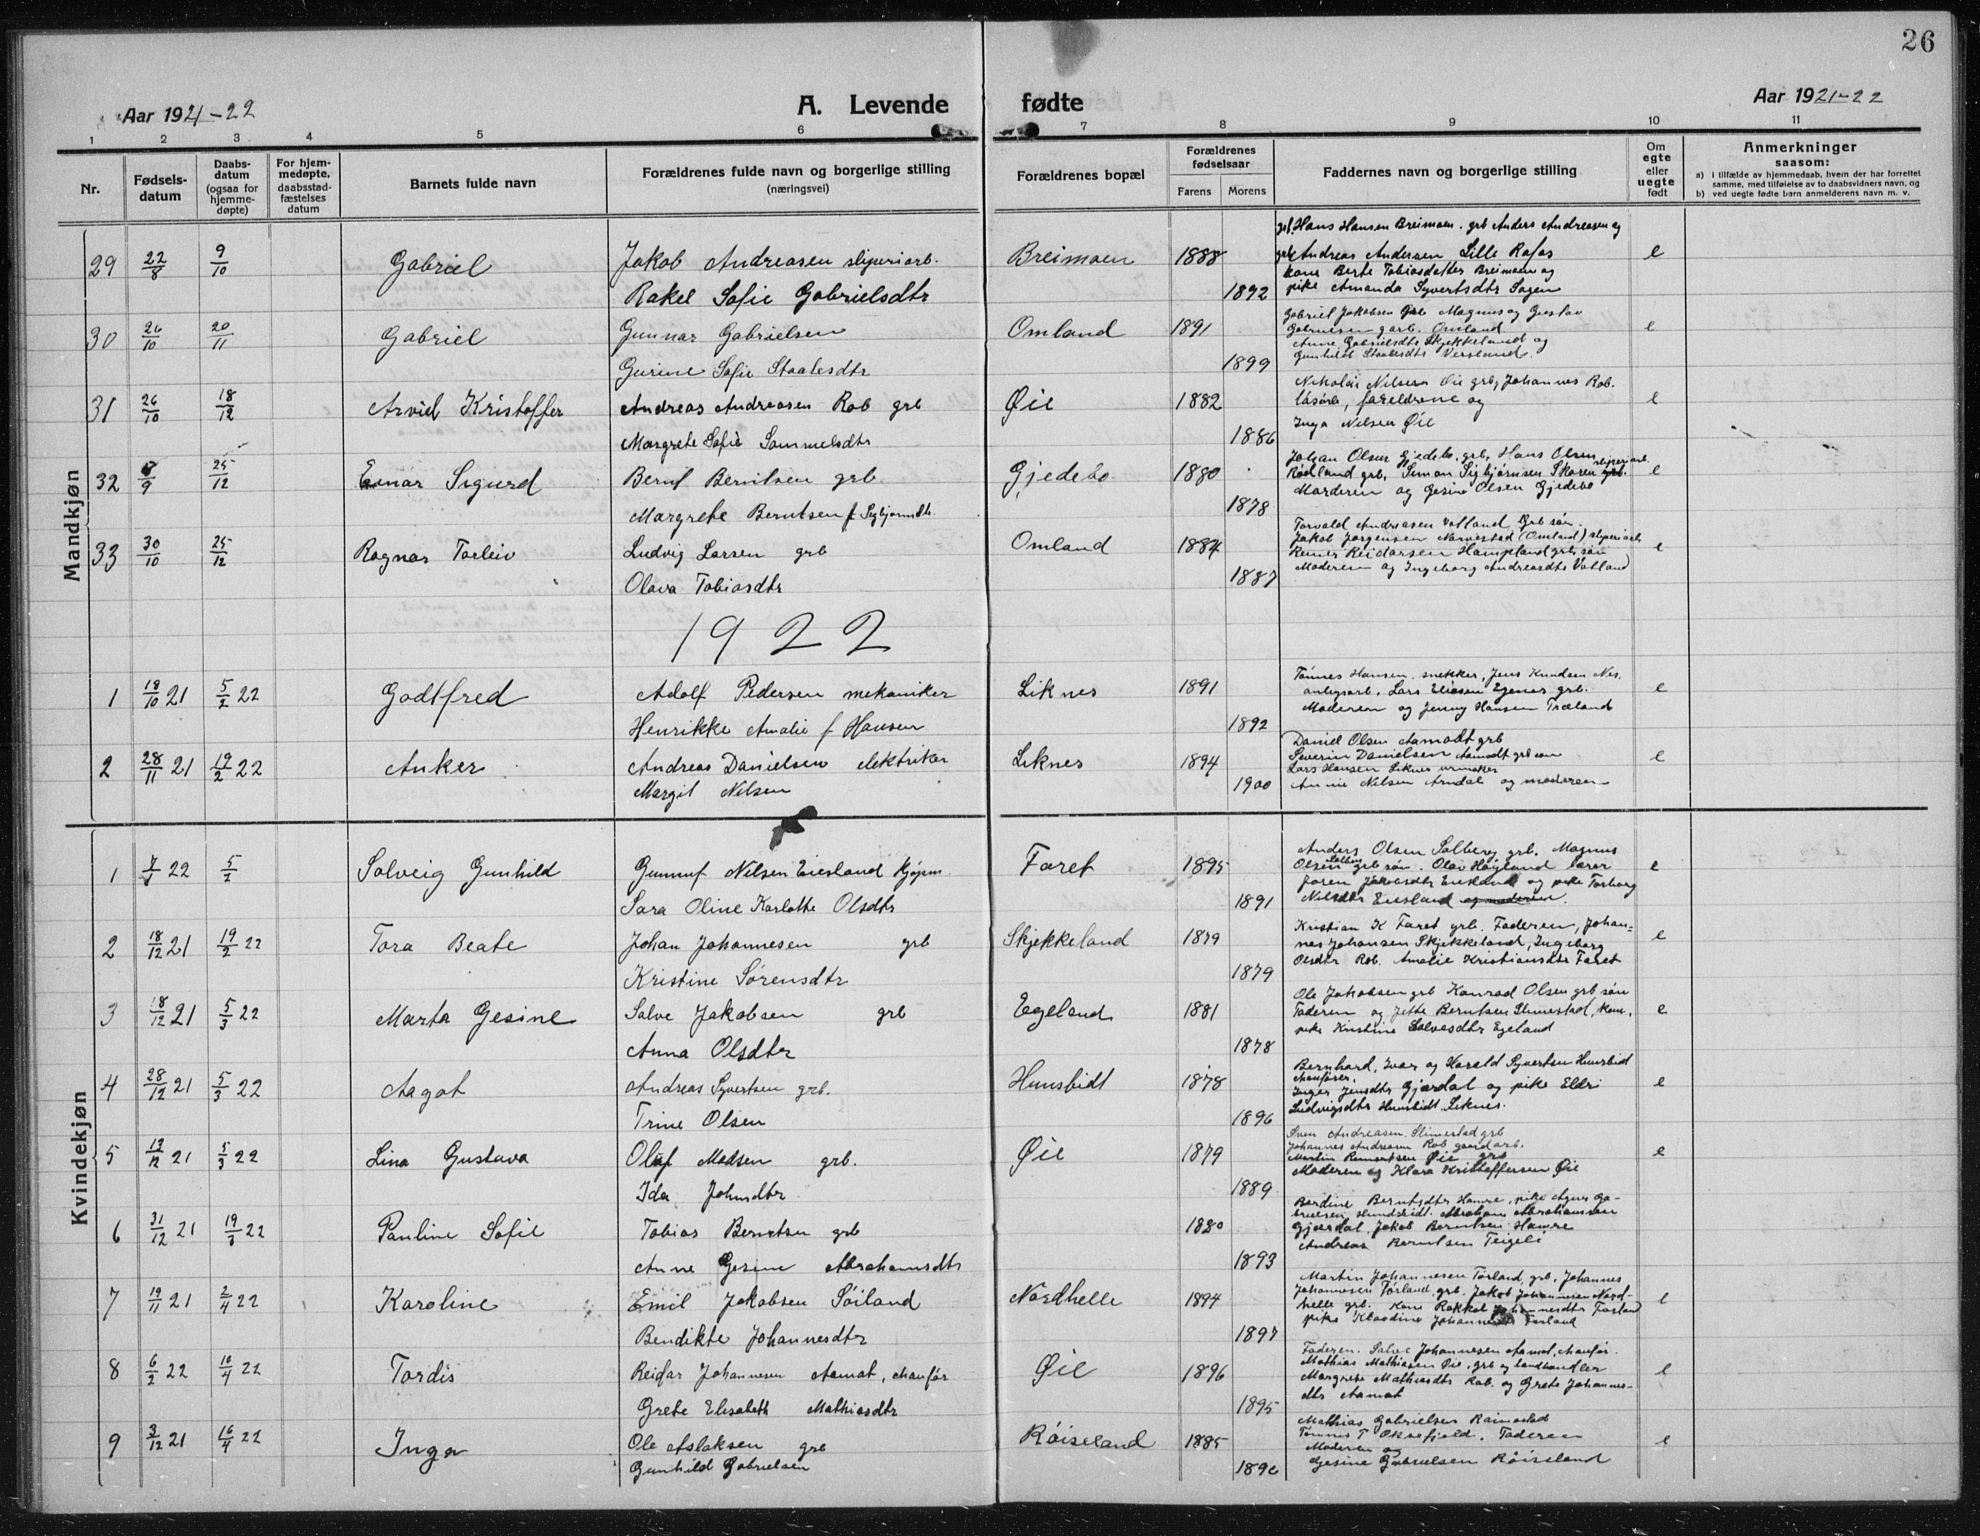 26
Aar 1921-22
A. Levende fødte
Aar 1921-22
1 2 3 4 5 6 7 8 9 10 11
Nr.
Fødsels-
datum
Daabs-
datum
(ogsaa for
hjemme-
døpte)
For hjem-
medøpte,
daabsstad-
fæstelses
datum
Barnets fulde navn
Forældrenes fulde navn og borgerlige stilling
(næringsvei)
Forældrenes bopæl
Forældrenes
fødselsaar
Farens Morens
Faddernes navn og borgerlige stilling
Om
egte
eller
uegte
født
Anmerkninger
saasom:
a) i tilfælde av hjemmedaab, hvem der har forrettet
samme, med tilføielse av to daabsvidners navn, og
b) ved uegte fødte barn anmelderens navn m. v.
Mandkjøn
29 22/8 9/10 Gabriel Jakob Andreasen sliperiarb. Breimoen 1888 e
Rakel Sofie Gabrielsdtr 1892
Hans Hansen Breimoen, grb Anders Andreasen og
grb Andreas Andersen Lille Rafos
kone Berte Tobiasdatter Breimoen og
pike Amanda Syvertsdtr Sagen
30 26/10 20/11 Gabriel Gunnar Gabrielsen Omland 1891 e
Gurine Sofie Staalesdtr 1899
Gabriel Jakobsen grb Magnus og Gustav
Gabrielsen garb. Omland
Anne Gabrielsdtr Skjekkeland og
Gunhild Staalesdtr Versland
31 26/10 18/12 Arviel Kristoffer Andreas Andreasen Rob grb Øie 1882 e
Margrete Sofie Sammelsdtr 1886
Nikolai Nilsen Øie grb, Johannes Rob.
løsarb, forældrene og
Inga Nilsen Øie
32 25/12 Einar Sigurd Bernt Berntsen grb Gjedebo 1880 e
Margrete Berntsen f. Sigbjørnsdtr. 1878
Johan Olsen Gjedebo, grb, Hans Olsen
Rødland grb, Simon Sigbjørnsen Skoren sliperiarb.
Moderen og Gesine Olsen Gjedebo
33 30/10 25/12 Ragnar Torleiv Ludvig Larsen grb Omland 1884 e
Olava Tobiasdtr 1887
Torvald Andreasen Vatland grb søn.
Jakob Jørgensen Narvestad (Omland) sliperiarb
Reiner Reidarsen Hampland grb. søn
Moderen og Ingeborg Andreasdtr Vatland
1922
1 18/10 21 5/2 22 Godtfred Adolf Pedersen mekaniker Liknes 1891 e
Henrikke Amalie f Hansen 1892
Tønnes Hansen, snekker, Jens Knudsen Nes,
anlegsarb. Lars Eliasen Egenes grb.
Moderen og Jenny Hansen Træland
2 28/11 21 19/2 22 Anker Andreas Danielsen elektriker Liknes 1894 e
Margit Nilsen 1900
Daniel Olsen Aamodt grb
Severin Danielsen Aamodt grb søn
Lars Hansen Liknes urmaker
Annie Nilsen Arndal og moderen
Kvindekjøn
1 22 5/2 Solveig Gunhild Gunnuf Nilsen Eiesland kjøpm. Faret 1895 e
Sara Oline Karlotte Olsdtr 1891
Anders Olsen Solberg grb, Magnus
Olsen Solberg grb søn. Olav Høyland lærer
Joren Jakobsdtr Eiesland og pike Torborg
Nilsdtr Eiesland og moderen.
2 18/12 21 19/2 22 Tora Beate Johan Johannesen grb Skjekkeland 1879 e
Kristine Sørensdtr 1879
Kristian K Faret grb. Faderen, Johan-
nes Johansen Skjekkeland, Ingeborg
Olsdtr Rob. Amalie Kristiansdtr Faret
3 18/12 21 5/3 22 Marta Gesine Salve Jakobsen grb Egeland 1881 e
Anna Olsdtr 1878
Ole Jakobsen grb Konrad Olsen grb søn
Faderen og Jette Berntsen Slimestad, kone,
pike Kristine Salvesdtr Egeland
4 28/12 21 5/3 22 Aagot Andreas Syvertsen grb. Hunsbidt 1878 e
Trine Olsen 1896
Bernhard, Ivar og Harald Syvertsen Hunsbidt
chauffører,
Inger Jensdtr Gjærdal og pike Eldri
Ludvigsdtr Hunsbidt Liknes.
5 13/12 21 5/3 22 Lina Gustava Oluf Madsen grb. Øie 1879 e
Ida Johnsdtr 1889
Sven Andreasen Slimestad grb
Johannes Andreasen Rob gaardarb.
Martin Berntsen Øie grb
Moderen og Klara Kristoffersen Øie
6 31/12 21 19/3 22 Pauline Sofie Tobias Berntsen grb 1880
Anne Gesine Abrahamsdtr 1893
Berdine Berntsdtr Hamre, pike Agnes Ga-
brielsen Hunsbidt. Abraham Abrahamsen
Gjærdal, Jakob Berntsen Hamre
Andreas Berntsen Teigeli
7 19/11 21 2/4 22 Karoline Emil Jakobsen Søiland Nordhelle 1894 e
Bendikte Johannesdtr 1897
Martin Johannesen Førland, grb, Johannes
Johannesen Førland grb. Jakob Johannesen Nord-
helle grb. Kone Rakkel Johannesdtr Førland
pike Klaudine Johannesdtr Førland
8 6/2 22 16/4 22 Tordis Reidar Johannesen Aamot, chaufør Øie 1896 e
Grete Elisabeth Mathiasdtr 1895
Faderen. Salve Johannesen Aamot, chaufør.
Mathias Mathiasen Øie, grb og landhandler
Margrete Mathiasdtr Rob. og Grete Johannes-
dtr Aamot
9 3/12 21 16/4 22 Inga Ole Aslaksen grb Røiseland 1885 e
Gunhild Gabrielsen
Mathias Gabrielsen Ramstad
Tønnes T Oksefjeld. Faderen
Moderen og
Gesine Gabrielsen Røiseland